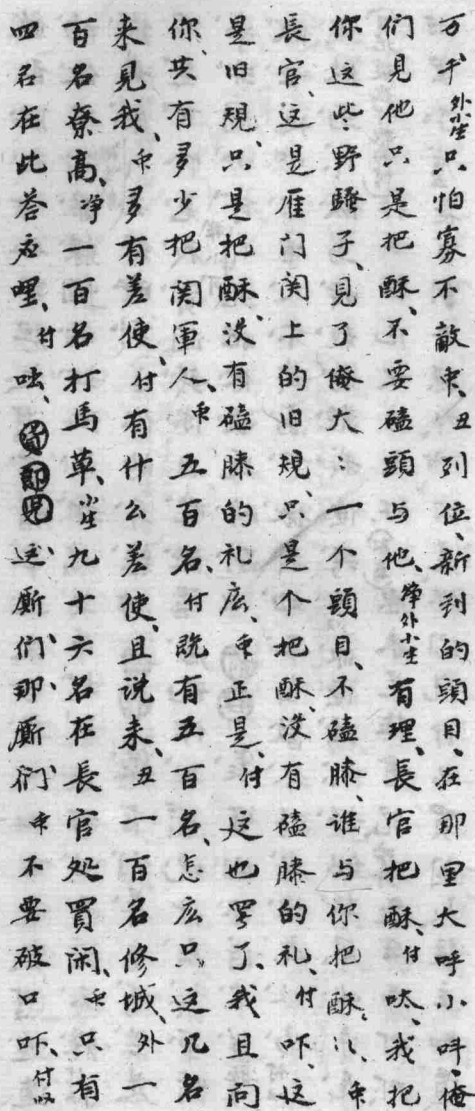 万千外小生只怕寡不敵衆、丑列位、新到的頭目、在那里大呼小呌、俺
们見他只是把酥、不要磕頭与他、净外小生有理、長官把酥、付呔、我把
你这些野騷子、見了俺大〻一个頭目、不磕膝、谁与你把酥〻、衆
長官、这是雁门関上的旧規、只是个把酥、没有磕膝的礼、付吓、这
是旧規、只是把酥、没有磕膝的礼庅、衆正是、付这也罢了、我且问
你、共有多少把関軍人、衆五百名、付既有五百名、怎庅只这几名
来見我、衆多有差使、付有什么差使、且说来、丑一百名修城、外一
百名尞高、净一百名打馬草、小生九十六名在長官処買闲、衆只有
四名在此荅应哩、付咄、这厮们、那厮们、衆不要破口吓、付